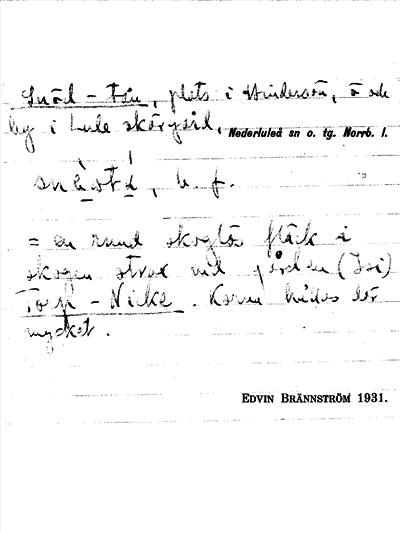 Snöd-tån, plats i Hindersön, ö och
by i Lule skärgård. Nederluleå sn o. tg. Norrb. l.
b. f.
= en rund skoglös fläck i
skogen strax vid gården (Isi)
Torp-Nicke. Korna hålles där
mycket.
EDVIN BRÄNNSTRÖM 1931.